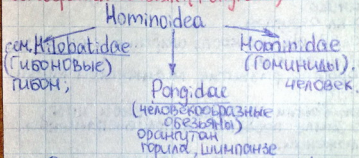 Hominoidea
сем. Hilobatidae
(Гибоновые)
гибон;
Pongidae
(человекообразные
обезьяны)
орангутан
горила, шимпанзе
Hominidae
(Гоминиды).
человек.